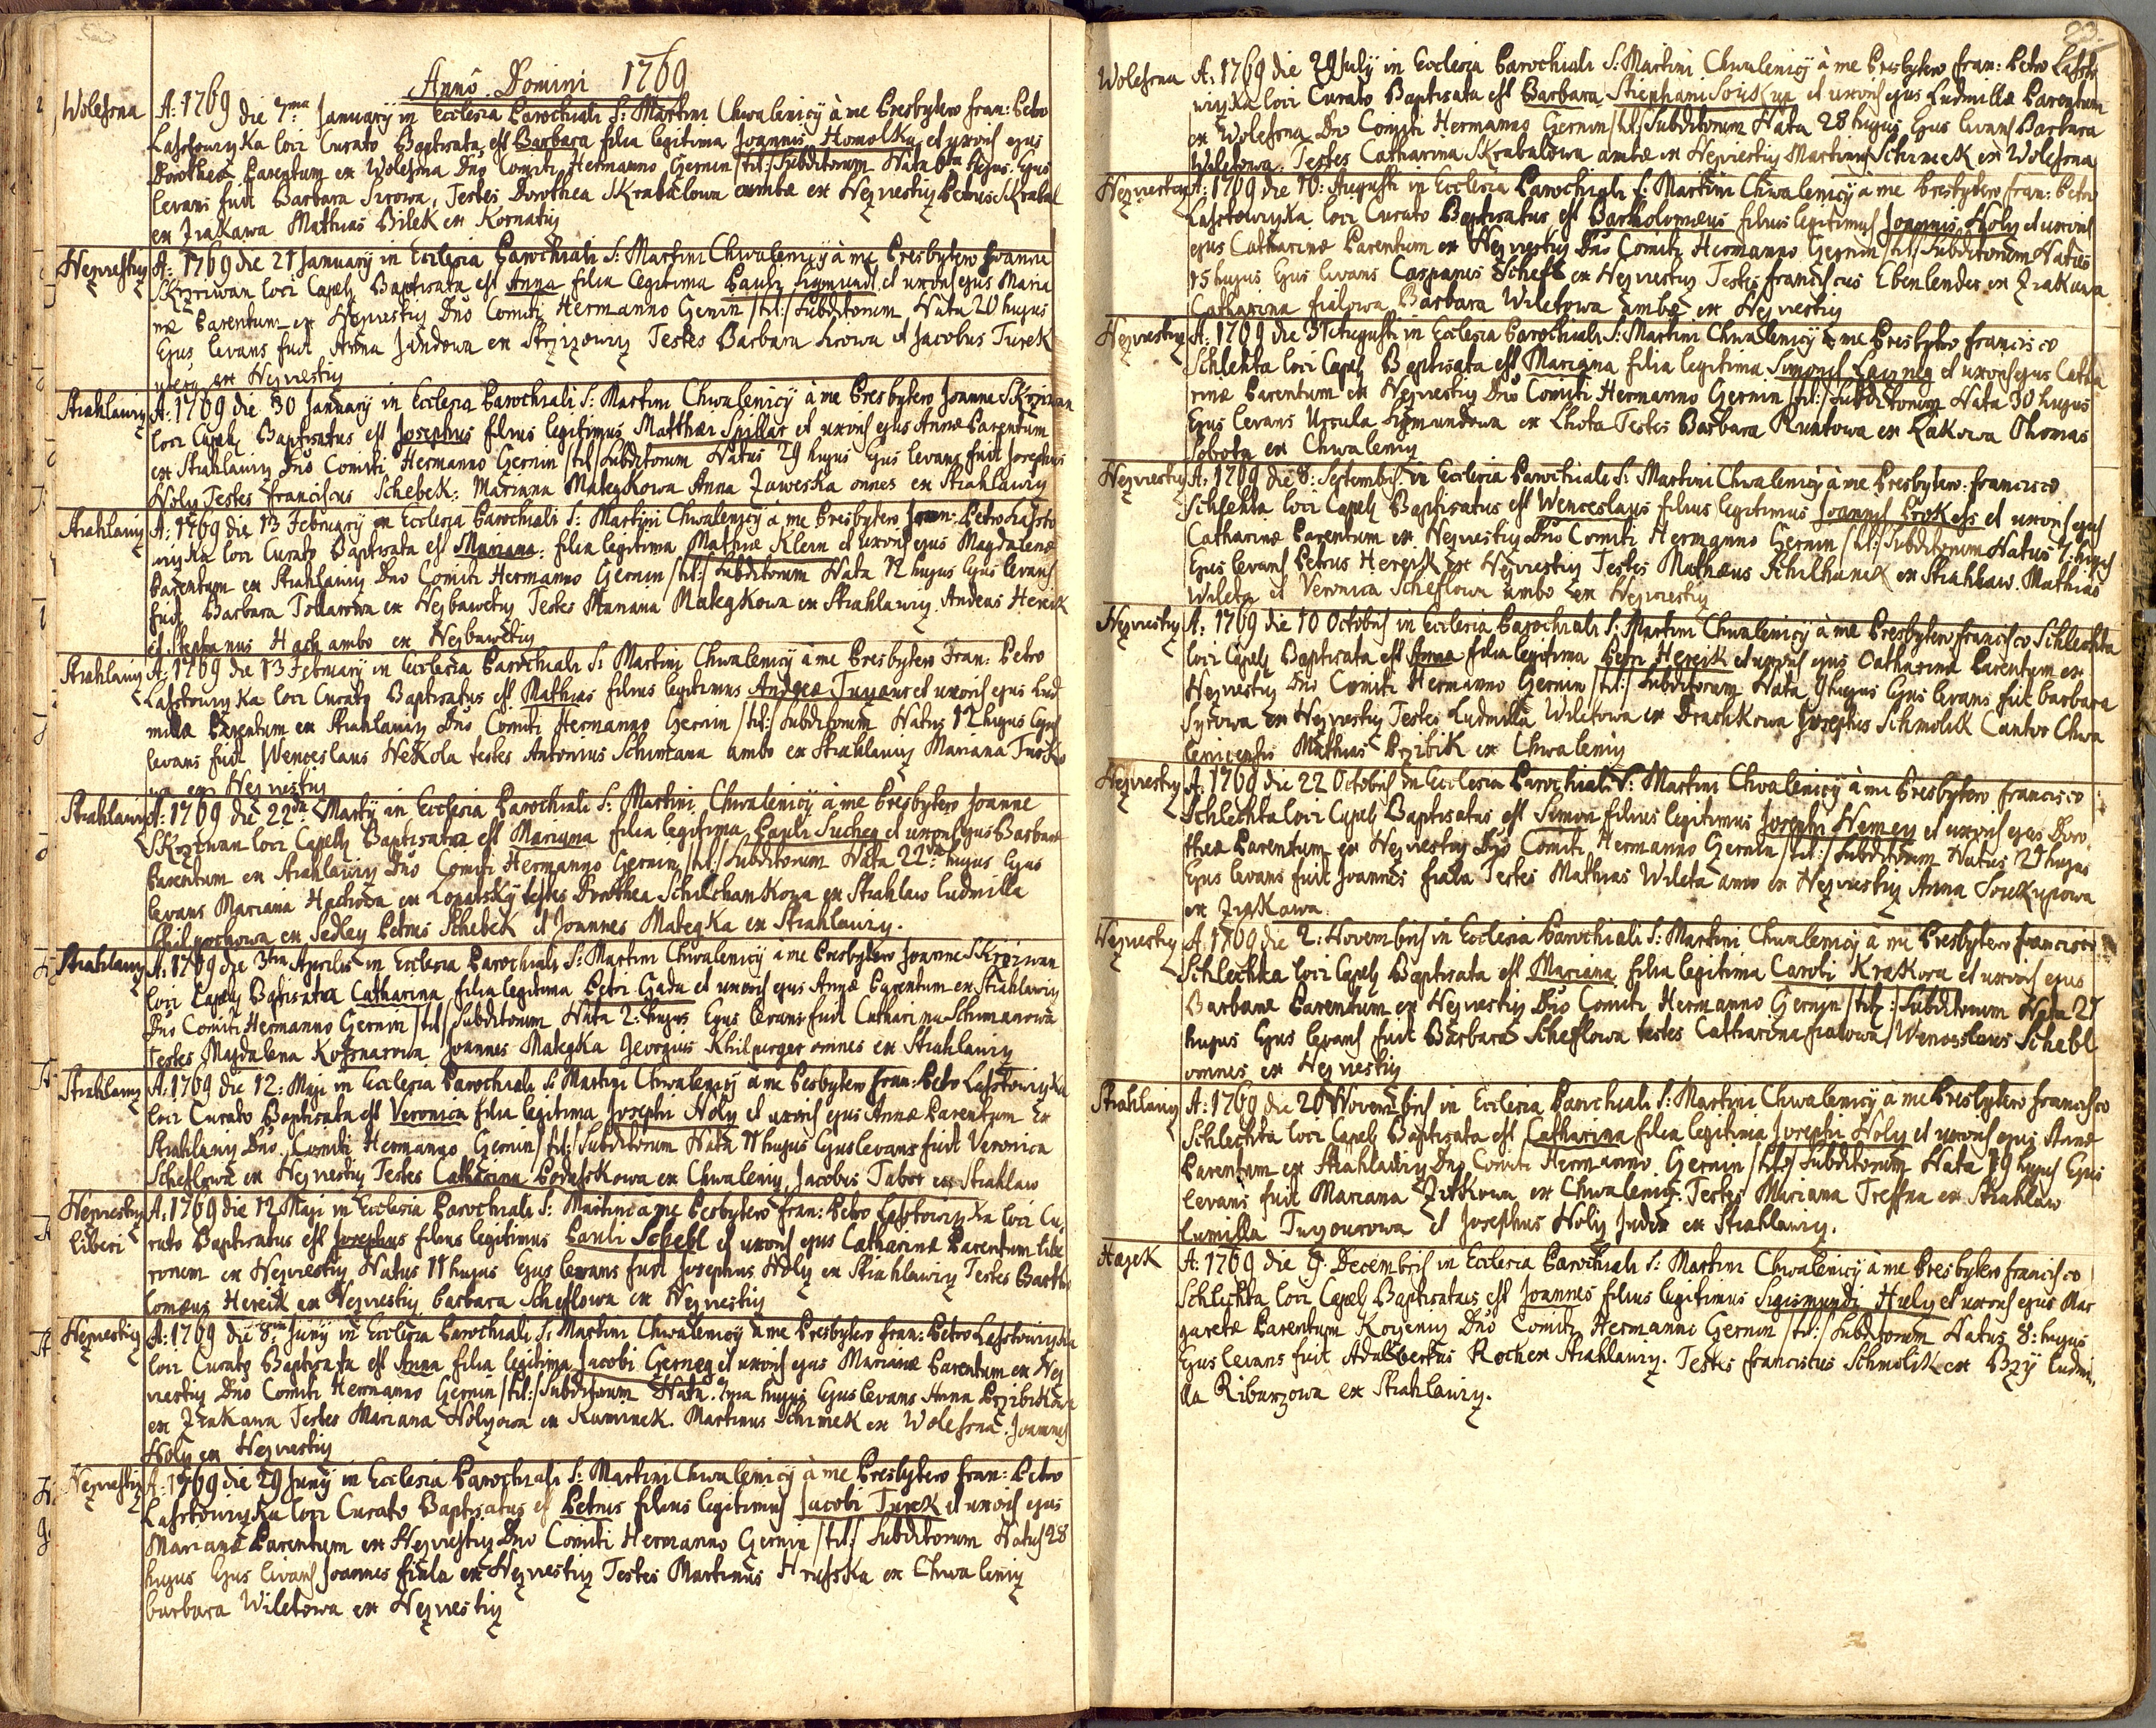 Anno Domini 1769
Wolesna A: 1769 die 7ma January in Ecclesia Parochiali S: Martini Chwalenicy à me Presbytero Fran: Petro
Lasstowiczka loci Curato Baptisata est Barbara filia legitima Joannis Homolka et uxoris ejus
Dorotheæ Parentum ex Wolesna Dno Comiti Hermanno Gernin /:tit:/ Subditorum Nata 6ta hujus Ejus
levans fuit Barbara Sirowa, Testes Dorothea Skrabalowa ambæ ex Nezwestiz Petrus Skrabal
ex Zirakawa Mathias Bilek ex Kornatiz
Nezwestiz A: 1769 die 21 January in Ecclesia Parochiali S: Martini Chwalenicy à me Presbytero Joanne
Skrziwan loci Capell: Baptisata est Anna filia legitima Pauli Sigmund et uxoris ejus Maria
næ Parentum ex Nezwestiz Dno Comiti Hermanno Gernin /:tit:/ Subditorum Nata 20 hujus
Ejus levans fuit Anna Jandowa ex Strzizowiz Testes Barbara Sirowa et Jacobus Turek
ex Nezwestiz
Strahlawiz A: 1769 die 30 January in Ecclesia Parochiali S: Martini Chwalenicy à me Presbytero Joanne Skrziwan
loci Capell: Baptisatus est Josephus filius legitimus Matthæi Spillar et uxoris ejus Annæ Parentum
ex Strahlawiz Dno Comiti Hermanno Gernin /:tit:/ Subditorum Natus 29 hujus Ejus levans fuit Josephus
Holy Testes Franciscus Schebek: Marianna Mategkowa Anna Zaweska omnes ex Strahlawiz
Strahlawiz A: 1769 die 13 February in Ecclesia Parochiali S: Martini Chwalenicy à me Presbytero Fran: Petro Lassto
wiczka loci Curato Baptisata est Mariana: filia legitima Mathiæ Klein et uxoris ejus Magdalenæ
Parentum ex Strahlawiz Dno Comiti Hermanno Gernin /:tit:/ Subditorum Nata 12 hujus Ejus levans
fuit Barbara ex Nezbawetiz Testes Mariana Mategkowa ex Strahlawiz Andreas Hereik
et Stephanus Hach ambo ex Nezbawetiz
Strahlawiz A: 1769 die 13 February in Ecclesia Parochiali S: Martini Chwalenicy à me Presbytero Fran: Petro
Lasstowiczka loci Curato Baptisatus est Mathias filius legitimus Andreæ et uxoris ejus Lud
millæ Parentum ex Strahlawiz Dno Comiti Hermanno Gernin /:tit:/ Subditorum Natus 12 hujus Ejus
levans fuit Wenceslaus Nekola testes Antonius Schimana ambo ex Strahlawiz Mariana Turko
wa ex Nezwestiz
Strahlawiz A: 1769 die 22da Marty in Ecclesia Parochiali S: Martini Chwalenicy à me Presbytero Joanne
Skrziwan loci Capell: Baptisata est Mariana filia legitima Pauli Sucheg et uxoris ejus Barbaræ
Parentum ex Strahlawiz Dno Comiti Hermanno Gernin /:tit:/ Subditorum Nata 22da hujus Ejus
levans Mariana Hachowa ex Lopatsky testes Dorothea Schilchankowa ex Strahlaw Ludmilla
ex Sedley Petrus Schebek et Joannes Mategka ex Strahlawiz.
Strahlawiz A: 1769 die 3tia Aprilis in Ecclesia Parochiali S: Martini Chwalenicy à me Presbytero Joanne Skrziwan
loci Capell: Baptisata Catharina filia legitima Petri Gada et uxoris ejus Annæ Parentum ex Strahlawiz
Dno Comiti Hermanno Gernin /:tit:/ Subditorum Nata 2: hujus Ejus levans fuit Catharina Schimanowa
testes Magdalena Joannes Mategka Georgius Khilperger omnes ex Strahlawiz
Strahlawiz A: 1769 die 12: Maji in Ecclesia Parochiali S: Martini Chwalenicy à me Presbytero Fran: Petro Lasstowiczka
loci Curato Baptisata est Veronica filia legitima Josephi Holy et uxoris ejus Annæ Parentum Ex
Strahlawiz Dno Comiti Hermanno Gernin /:tit:/ Subditorum Nata 11 hujus Ejus levans fuit Veronica
Scheflowa ex Nezwestiz Testes Catharina ex Chwaleniz Jacobus Tabor ex Strahlaw
Nezwestiz A: 1769 die 12 Maji in Ecclesia Parochiali S: Martini à me Presbytero Fran: Petro Lasstowiczka loci Cu
Liberi rato Baptisatus est Josephus filius legitimus Pauli Schebl et uxoris ejus Catharinæ Parentum libe
rorum ex Nezwestiz Natus 11 hujus Ejus levans fuit Josephus Holy ex Strahlawiz Testes Bartho
lomæus Hereik ex Nezwestiz Barbara Scheflowa ex Nezwestiz
Nezwestiz A: 1769 die 8va Juny in Ecclesia Parochiali S: Martini Chwalenicy à me Presbytero Fran: Petro Lasstowiczka
loci Curato Baptisata est Anna filia legitima Jacobi Gerneg et uxoris ejus Marianæ Parentum ex Nez
westiz Dno Comiti Hermanno Gernin /:tit:/ Subditorum Nata 7ma hujus Ejus levans Anna Przibikowa
ex Zirakawa Testes Mariana Holyowa ex Kaminek. Martinus Schimek ex Wolesna. Joannes
Holy ex Nezwestiz
Nezwestiz A: 1769 die 29 Juny in Ecclesia Parochiali S: Martini Chwalenicy à me Presbytero Fran: Petro
Lasstowiczka loci Curato Baptisatus est Petrus filius legitimus Jacobi Turek et uxoris ejus
Marianæ Parentum ex Nezwestiz Dno Comiti Hermanno Gernin /:tit:/ Subditorum Natus 28
hujus Ejus levans Joannes Fiala ex Nezwestiz Testes Martinus Hrusska ex Chwaleniz
Barbara Wiletowa ex Nezwestiz
23.
Wolesna A: 1769 die 29 July in Ecclesia Parochiali S: Martini Chwalenicy à me Presbytero Fran: Petro Lassto
wiczka loci Curato Baptisata est Barbara Stephani Souskup et uxoris ejus Ludmillæ Parentum
ex Wolesna Dno Comiti Hermanno Gernin /:tit:/ Subditorum Nata 28 hujus Ejus levans Barbara
Wiletowa. Testes Catharina Skrabalowa ambæ ex Nezwestiz Martinus Schimek ex Wolesna
Nezwestiz A: 1769 die 16: Augusti in Ecclesia Parochiali S: Martini Chwalenicy à me Presbytero Fran: Petro
Lasstowiczka loci Curato Baptisatus est Bartholomæus filius legitimus Joannis Holy et uxoris
ejus Catharinæ Parentum ex Nezwestiz Dno Comiti Hermanno Gernin /:tit:/ Subditorum Natus
15 hujus Ejus levans Casparus Schefl ex Nezwestiz Testes Franciscus Ebenlender ex Zirakawa
Catharina Fialowa Barbara Wiletowa ambæ ex Nezwestiz
Nezwestiz A: 1769 die 31 Augusti in Ecclesia Parochiali S: Martini Chwalenicy à me Presbytero Francisco
Schlehta loci Capell: Baptisata est Mariana filia legitima Simonis et uxoris ejus Catha
rinæ Parentum ex Nezwestiz Dno Comiti Hermanno Gernin /:tit:/ Subditorum Nata 30 hujus
Ejus levans Ursula Sigmundowa ex Lhota Testes Barbara ex Lakowa Thomas
Sobota ex Chwaleniz
Nezwestiz A: 1769 die 8: Septembris in Ecclesia Parochiali S: Martini Chwalenicy à me Presbytero: Francisco
Schlehta loci Capell: Baptisatus est Wenceslaus filius legitimus Joannis Prokess et uxoris ejus
Catharinæ Parentum ex Nezwestiz Dno Comiti Hermanno Gernin /:tit:/ Subditorum Natus 7: hujus
Ejus levans Petrus Hereik ex Nezwestiz Testes Mathæus Schilhanek ex Strahlaw. Mathias
Wileta et Veronica Scheflowa ambo ex Nezwestiz
Nezwestiz A: 1769 die 10 Octobris in Ecclesia Parochiali S: Martini Chwalenicy à me Presbytero Francisco Schlechta
loci Capell: Baptisata est Anna filia legitima Petri Hereik et uxoris ejus Catharinæ Parentum ex
Nezwestiz Dno Comiti Hermanno Gernin /:tit:/ Subditorum Nata 9 hujus Ejus levans fuit Barbara
Syrowa ex Nezwestiz Testes Ludmilla Wiletowa ex Drachkowa Josephus Schmolik Cantor Chwa
lenicensis Mathias Przibik ex Chwaleniz
Nezwestiz A: 1769 die 22 Octobris in Ecclesia Parochiali S: Martini Chwalenicy à me Presbytero Francisco
Schlechta loci Capell: Baptisatus est Simon filius legitimus Josephi Nemey et uxoris ejus Doro
theæ Parentum ex Nezwestiz Dno Comiti Hermanno Gernin /:tit:/ Subditorum Natus 21 hujus
Ejus levans fuit Joannes Fiala Testes Mathias Wileta ambo ex Nezwestiz Anna Soukupowa
ex Zirakawa
Nezwestiz A: 1769 die 2: Novembris in Ecclesia Parochiali S: Martini Chwalenicy à me Presbytero Francisco
Schlechta loci Capell: Baptisata est Mariana filia legitima Caroli Krakora et uxoris ejus
Barbaræ Parentum ex Nezwestiz Dno Comiti Hermanno Gernin /:tit:/ Subditorum Nata 21
hujus Ejus levans fuit Barbara Scheflowa testes Catharina Fialowa, Wenceslaus Schebl
omnes ex Nezwestiz
Strahlawiz A: 1769 die 20 Novembris in Ecclesia Parochiali S: Martini Chwalenicy à me Presbytero Francisco
Schlechta loci Capell: Baptisata est Catharina filia legitima Josephi Holy et uxoris ejus Annæ
Parentum ex Strahlawiz Dno Comiti Hermanno Gernin /:tit:/ Subditorum Nata 19 hujus Ejus
levans fuit Mariana Zitkowa ex Chwaleniz. Testes Mariana Treffna ex Strahlaw
Lumilla et Josephus Holy Judex ex Strahlawiz.
Hagek A: 1769 die 9. Decembris in Ecclesia Parochiali S: Martini Chwalenicy à me Presbytero Francisco
Schlechta loci Capell: Baptisatus est Joannes filius legitimus Sigismundi Huly et uxoris ejus Mar
garetæ Parentum Dno Comiti Hermanno Gernin /:tit:/ Subditorum Natus 8: hujus
Ejus levans fuit Adalbertus Roch ex Strahlawiz. Testes Franciscus Schmolik ex Brzy Ludmi
lla Ribarzowa ex Strahlawiz.